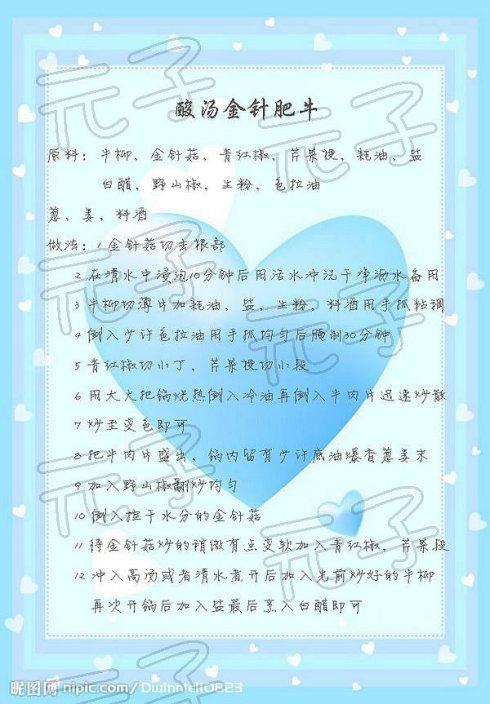 酸汤金针肥牛
原料：牛柳、金针菇、青红椒、芹菜梗、耗油、盐
白醋、野山椒、生粉、色拉油
葱、姜、料酒
做法：1 金针菇切去根部
2 在清水中浸泡10分钟后用活水冲洗干净沥水备用
3 牛柳切薄片加耗油、盐、生粉、料酒用手抓粘稠
4 倒入少许色拉油用手抓均匀后腌制30分钟
5 青红椒切小丁，芹菜梗切小段
6 用大火把锅烧热倒入冷油再倒入牛肉片迅速炒散
7 炒至变色即可
8 把牛肉片盛出，锅内留有少许底油爆香葱姜末
9 加入野山椒翻炒均匀
10 倒入控干水分的金针菇
11 待金针菇炒的稍微有点变软加入青红椒，芹菜段
12 冲入高汤或者清水煮开后加入先前炒好的牛柳
再次开锅后加入盐最后烹入白醋即可
元子
元子
元子
元子
元子
元子
元子
元子
昵图网 nipic.com/Dwinniell0823